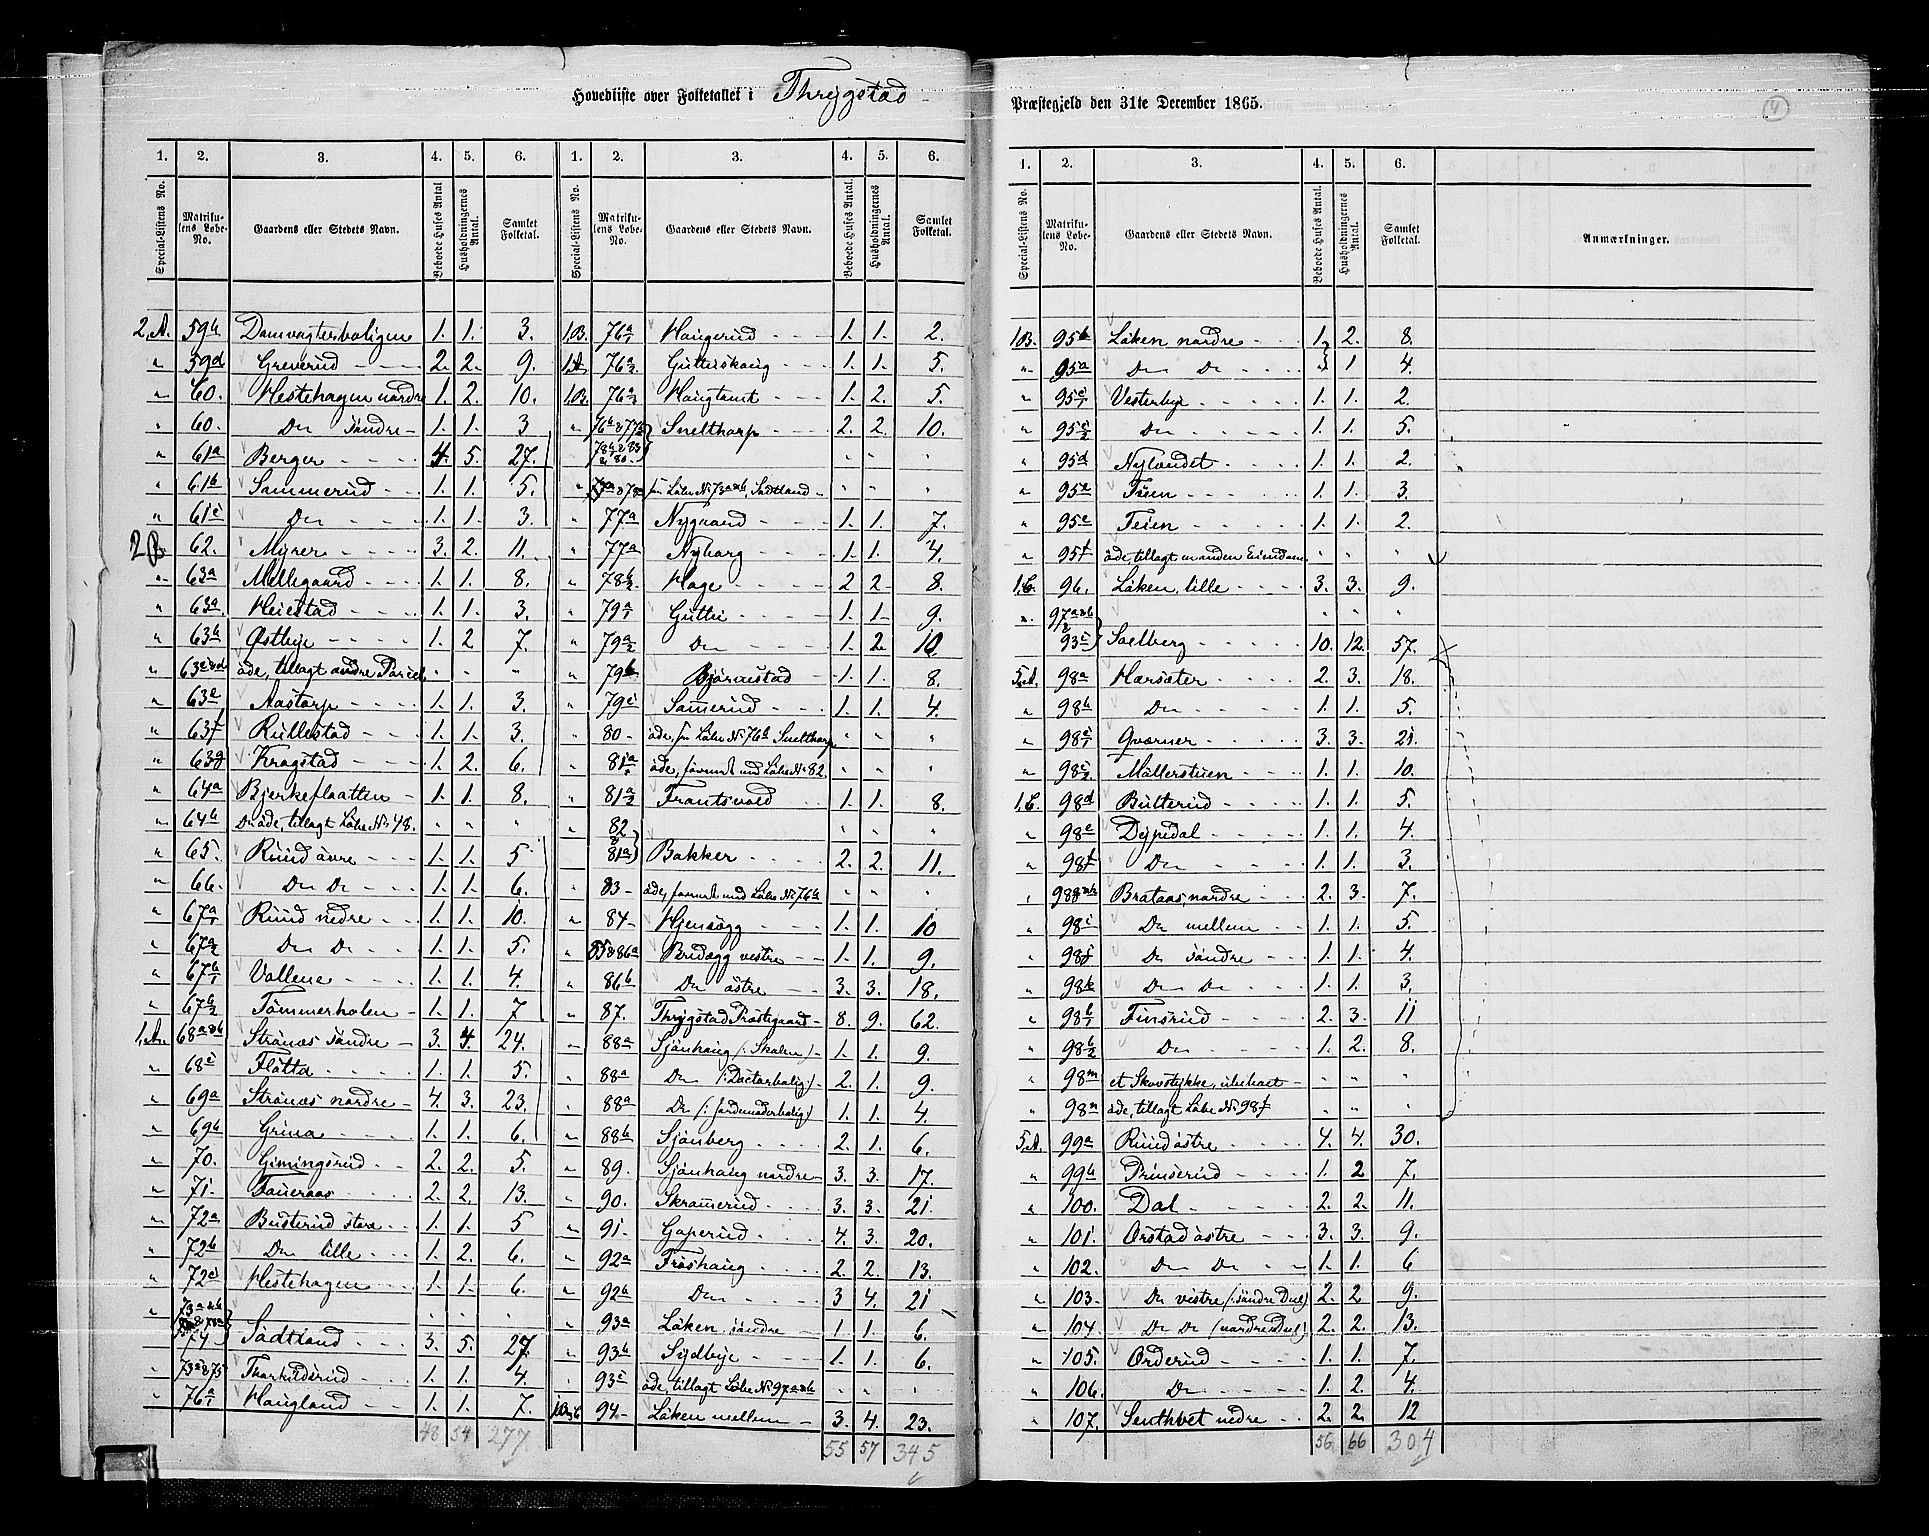 Hovedliste over Folketallet i Thrygstad
Præstegjeld den 31te December 1865.
4
1. 2. 3. 4. 5. 6. 1. 2. 3. 4. 5. 6.
Special-Listens No. Matrikulens Løbe-No. Gaardens eller Stedets Navn. Beboede Huses Antal Husholdningernes Antal. Samlet Folketal. Special-Listens No. Matrikulens Løbe-No. Gaardens eller Stedets Navn. Beboede Huses Antal. Husholdningernes Antal. Samlet Folketal.
2.A. 59b Damvogterboligen 1. 1. 3.
" 59d Greverud 2. 2. 9.
" 60. Hestehagen nordre 1. 2. 10.
" 60. Do søndre 1. 1. 3
" 61a Berger 4. 5. 27.
" 61b Sammerud 1. 1. 5.
" 61c Do 1. 1. 3.
2B. 62. Myrer 3. 2. 11.
" 63a Mellegaard 1. 1. 8.
" 63a Heiestad 1. 1. 3.
" 63b Østbye 1. 2 7.
" 63c&d øde, tillagt andre Parcel. " " "
" 63e Aastorp 1. 1. 3.
" 63f Rullestad 1. 1. 3.
" 63g Kragstad 1. 2 6.
" 64a Bjerkeflaatten 1. 1. 8.
" 64b Do øde, tillagt Løbe No 48. " " "
" 65. Rud øvre 1. 1. 5
" 66. Do Do 1. 1. 6.
" 67a/1 Rud nedre 1. 1. 10.
" 67a/2 Do Do 1. 1. 5.
" 67b/1 Vollene 1. 1. 4.
" 67b/2 Tømmerholen 1. 1. 7
1.A. 68a&b Strønæs søndre 3. 4. 24.
" 68c Fløtta 1. 1. 5.
" 69a Strønæs nordre 4. 3. 23.
" 69b Grina 1. 1. 6.
" 70. Gimingsrud 2. 2. 5.
" 71. Taueraas 2. 2. 13.
" 72a Busterud store 1. 1. 5
" 72b Do lille 1. 2. 6.
" 72c Hestehagen 1. 1. 6.
" 73a&b
74 Sadtland 3. 5. 27.
" 73c&75 Thorkildsrud 1. 1. 4.
" 76a/1 Haugland 1. 1. 7.
48 54 277
1.B. 76a/1 Haugerud 1. 1. 2.
1A 76a/2 Gutterskoug 1. 1. 5.
1.B. 76a/3 Haugtomt 1. 2. 5.
" 76b&77b Snetthorp 2. 2. 10.
78b/1 & 83 & 80 " " "
" 77a&78a fra Løbe No 73a&b, Sadtland " " "
" 77a Nygaard 1. 1. 7.
" 77a Nyborg 1. 1. 4.
" 78b/2 Hage 2 2 8.
" 79a/1 Guttu 1. 1 9.
" 79a/2 Do 1. 2. 10.
" 79b Bjørnestad 1. 1. 8.
" 79c Sam̅erud 1. 1. 4.
" 80 øde, fra Løbe No 76b Snetthorp " " "
" 81a/1 øde, forenet med Løbe No 82. " " "
" 81a/2 Frantsvold 1. 1. 8.
" 82 & 81a Bakker 2. 2. 11.
" 83 øde, forenet med Løbe No 76b " " "
" 84 Hjensøgg 1. 1. 10
" 85&86a Bredøgg vestre 1. 1. 9.
" 86b Do østre 3. 3. 18.
" 87. Thrygstad Præstegaard 8. 9. 62.
" 88a Sjønhaug (: Skolen) 1. 1. 9.
" 88a Do (: Doctorbolig:) 2. 1. 9.
" 88a Do (: Jordemoderbolig:) 1. 1. 4.
" 88b Sjønberg 2. 1. 6.
" 89. Sjønhaug nordre 3. 3. 17.
" 90. Skram̅erud 3. 3. 21.
" 91. Gaperud 4. 3. 20.
" 92a Frøshaug 2. 2. 13.
" 92b Do 3 4. 21
" 93a Løken søndre 1 1. 6.
" 93b Sydbye 1. 1. 6.
" 93c øde, tillagt Løbe No 97a&b " " "
94 Løken mellem 3. 4. 23.
55 57 345
1. 2. 3. 4. 5. 6.
Special-Listens No. Matrikulens Løbe-No. Gaardens eller Stedets Navn. Beboede Huses Antal. Husholdningernes Antal. Samlet Folketal. Anmærkninger.
1B. 95b Løken nordre 1 2. 8.
" 95a Do Do " 1 4.
" 95c/1 Vesterbye 1. 1. 2.
" 95c/2 Do 1. 1. 5.
" 95d Nylandet 1. 1. 2.
" 95e Tøsen 1. 1. 3.
" 95e Teien 1. 1. 2.
" 95f øde, tillagt en anden Eiendom " " "
1.C. 96. Løken, lille 3. 3. 9.
" 97a&b & 93c Soelberg 10. 12. 57.
5.A. 98a Harsæter 2. 3. 18.
" 98b Do 1. 1. 5.
" 98c/1 Qværner 3. 3. 21.
" 98c/2 Møllerstuen 1. 1. 10.
1.C. 98d Butterud 1. 1. 5.
" 98e Dypedal 1. 1. 4.
" 98f Do 1. 1. 3.
" 98g&h Brataas, nordre 2. 3. 7.
" 98i Do mellem 1. 1. 5.
" 98j Do søndre 1. 1. 4.
" 98k Do Do 1. 1. 3.
" 98l/1 Finsrud 2. 3. 11
" 98l/2 Do 1. 2. 8.
" 98m et Skovstykke, ubeboet " " "
" 98n øde, tillagt Løbe No 98f " " "
5.A. 99a Rud østre 4. 4. 30.
" 99b Prinserud 1. 2 7.
" 100. Dal 2. 2. 11.
" 101. Ørstad østre 3. 3. 9.
" 102. Do Do 1. 1. 6
" 103. Do vestre (: søndre Deel) 2. 2 9.
" 104. Do Do (nordre Deel) 2. 2. 13.
" 105. Orderud 1. 1. 7.
" 106. Do 1. 2. 4.
" 107. Senthvet nedre 2. 2. 12
56 66 304